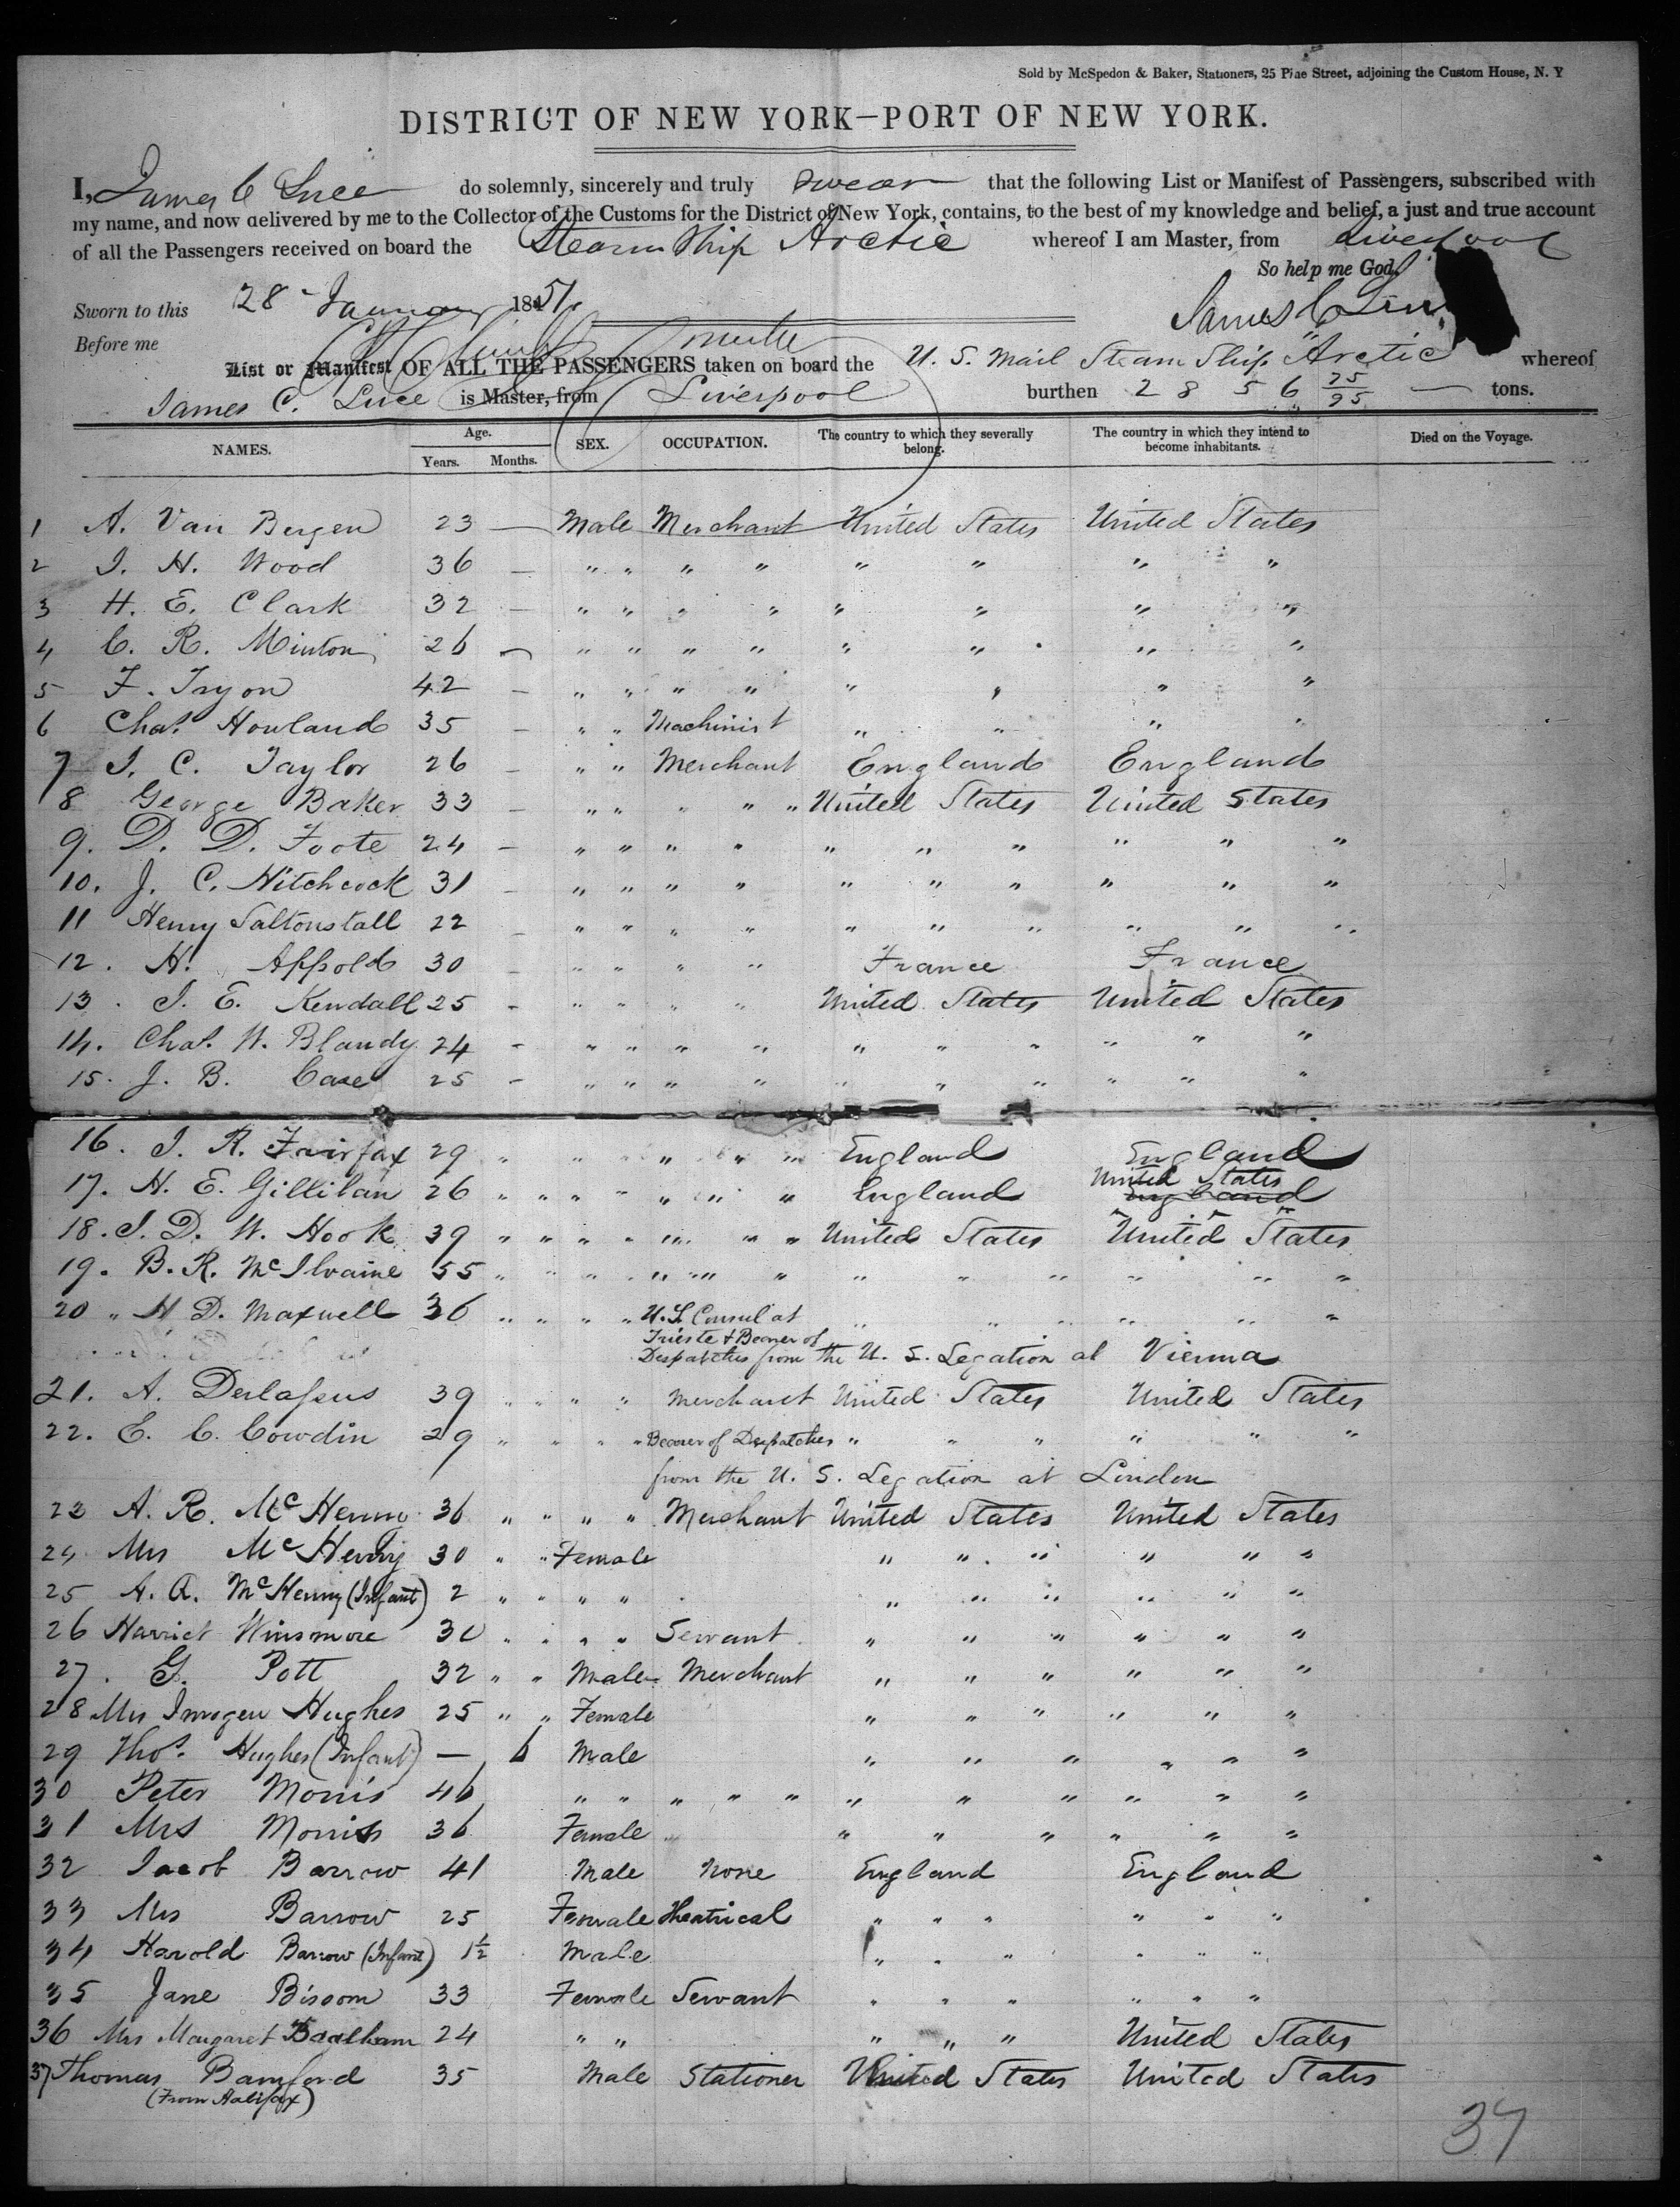 Sold by McSpedon & Baker, Stationers, 25 Pine Street, adjoining the Custom House, N. Y
DISTRICT OF NEW YORK—PORT OF NEW YORK.
I, James C Luce do solemnly, sincerely and truly swear that the following List or Manifest of Passengers, subscribed with
my name, and now delivered by me to the Collector of the Customs for the District of New York, contains, to the best of my knowledge and belief, a just and true account
of all the Passengers received on board the Steam Ship Arctic whereof I am Master, from Liverpool
So help me God.
Sworn to this 28 January 1851. James C Luce
Before me
List or Manifest OF ALL THE PASSENGERS taken on board the U. S. Mail Steam Ship "Arctic" whereof
James C. Luce is Master, from Liverpool burthen 2856 75/95 — tons.
NAMES. Age. Years. Months. SEX. OCCUPATION. The country to which they severally belong. The country in which they intend to become inhabitants. Died on the Voyage.
1 A. Van Bergen 23 — Male Merchant United States United States
2 J. H. Wood 36 — " " " " " " " "
3 H. E. Clark 32 — " " " " " " " "
4 C. R. Minton 26 — " " " " " " " "
5 F. Tryon 42 — " " " " " " " "
6 Chas. Howland 35 — " " Machinist " " " "
7 J. C. Taylor 26 — " " Merchant England England
8 George Baker 33 — " " " " " United States United States
9. D. D. Foote 24 — " " " " " " " " " "
10. J. C. Hitchcock 31 — " " " " " " " " " "
11 Henry Saltonstall 22 — " " " " " " " " " "
12. H. Appold 30 — " " " " France France
13. J. E. Kendall 25 - " " " " United States United States
14. Chas. W. Blandy 24 - " " " " " " " " " "
15. J. B. Case 25 — " " " " " " " " " "
16. J. R. Fairfax 29 " " " " " " England England
17. H. E. Gillilan 26 " " " " " " " England United States England
18. J. D. W. Hook 39 " " " " " " " United States United States
19. B. R. McIlvaine 55 " " " " " " " " " " " " "
20 " H D. Maxwell 36 " " " " U.S. Consul at " " " " " "
Trieste & Bearer of
Despatches from the U. S. Legation at Vienna
21. A. 39 " " " " Merchant United States United States
22. E. C. Cowdin 29 " " " " Bearer of Despatches " " " " " "
from the U. S. Legation at London
23 A. R. McHenry 36 " " " " Merchant United States United States
24 Mrs McHenry 30 " " Female " " " " " "
25 A. A. McHenry (Infant) 2 " " " " " " " " " "
26 Harriet Winsmore 30 " " " " Servant " " " " " "
27. G. Pott 32 " " Male Merchant " " " " " "
28 Mrs Imogen Hughes 25 " " Female " " " " " "
29 Thos. Hughes (Infant) — 6 Male " " " " " "
30 Peter Morris 46 " " " " " " " " " " "
31 Mrs Morris 36 Female " " " " " " "
32 Jacob Barrow 41 Male None England England
33 Mrs Barrow 25 Female Theatrical " " " " " "
34 Harold Barrow (Infant) 1½ Male " " " " " "
35 Jane Bissom 33 Female Servant " " " " " "
36 Mrs Margaret Badham 24 " " " " " United States
37 Thomas Bamford 35 Male Stationer United States United States
(From Halifax)
37